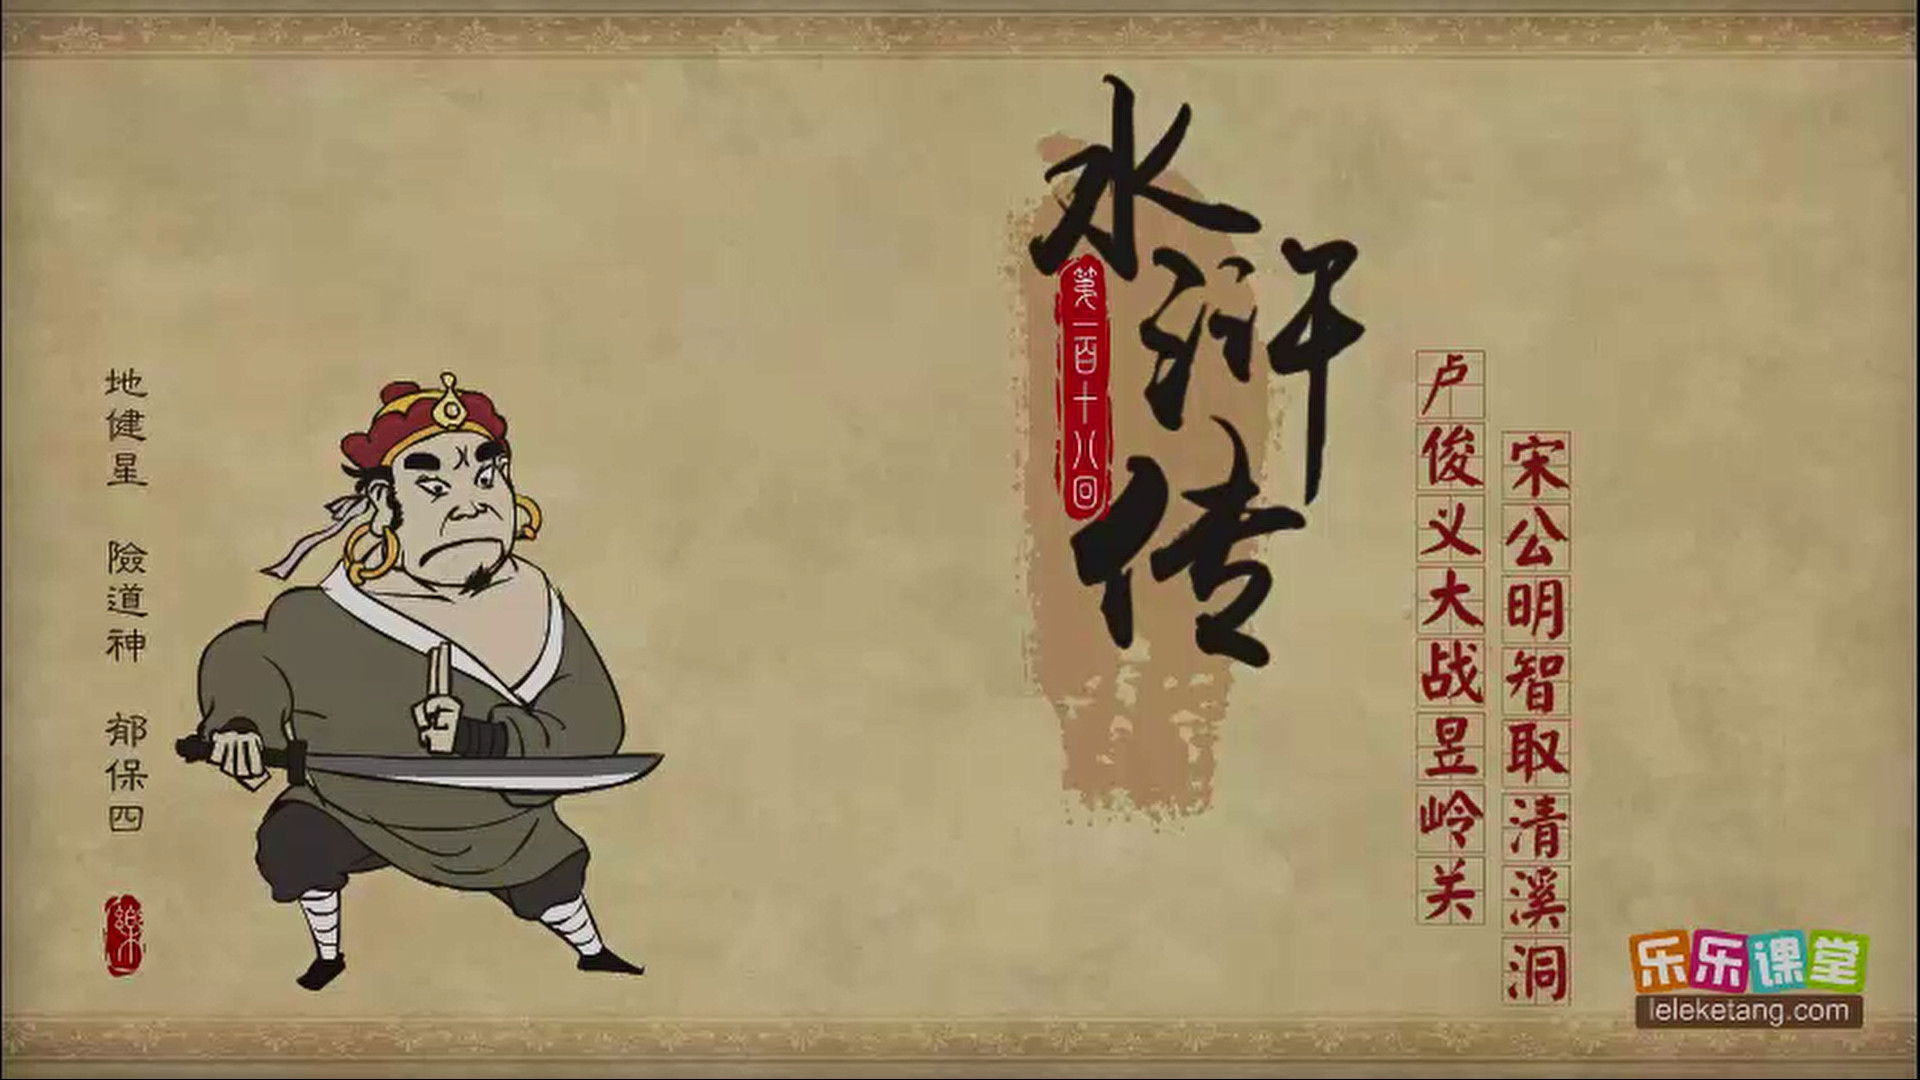 水浒传
第一百十八回
卢俊义大战昱岭关
宋公明智取清溪洞
地健星 險道神 郁保四
樂
乐乐课堂
leleketang.com